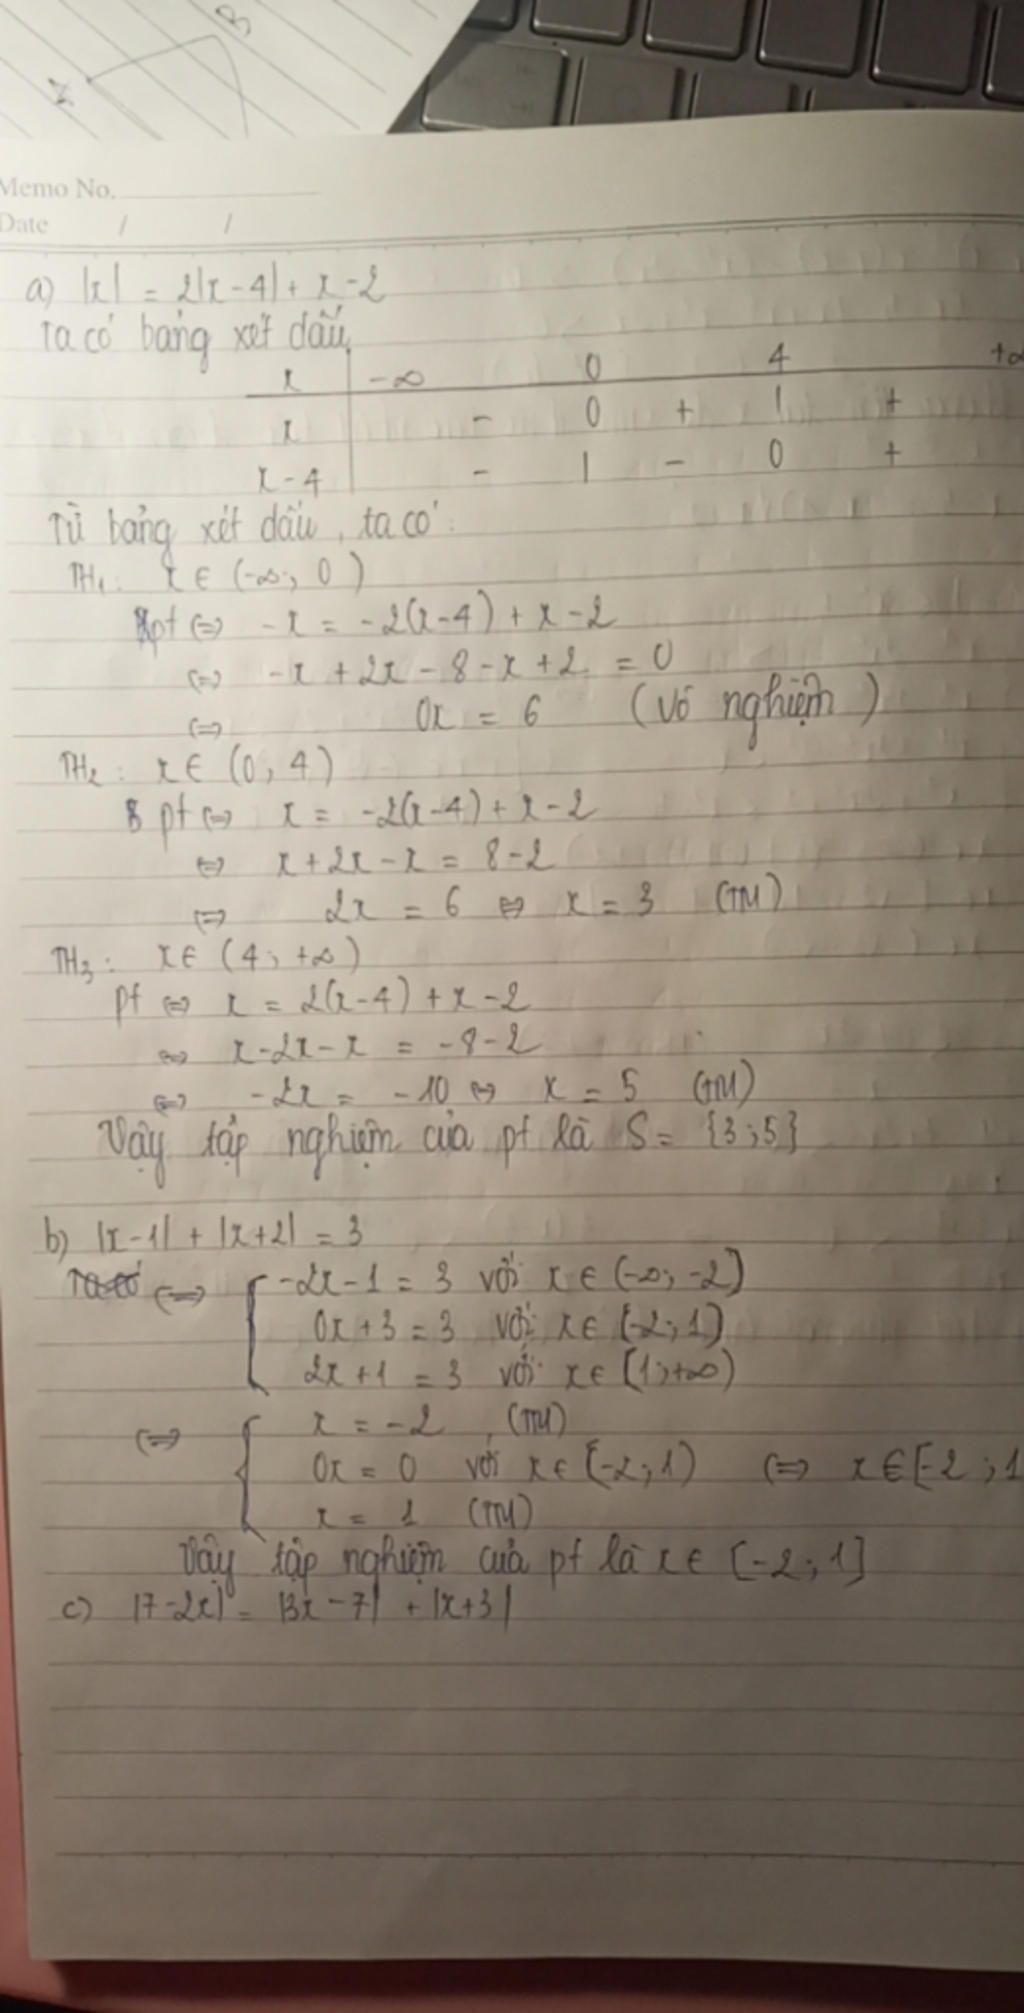 B
Memo No.
Date / /
a) |x| = 2|x-4| + x-2
Ta có bảng xét dấu
x | -∞ 0 4 +∞
x | - 0 + | +
x-4 | - | - 0 +
Từ bảng xét dấu, ta có:
TH₁: x ∈ (-∞; 0)
pt ⇔ -x = -2(x-4) + x-2
⇔ -x + 2x - 8 - x + 2 = 0
⇔ 0x = 6 (vô nghiệm)
TH₂: x ∈ (0; 4)
pt ⇔ x = -2(x-4) + x-2
⇔ x + 2x - x = 8-2
⇔ 2x = 6 ⇔ x = 3 (TM)
TH₃: x ∈ (4; +∞)
pt ⇔ x = 2(x-4) + x-2
⇔ x-2x-x = -8-2
⇔ -2x = -10 ⇔ x = 5 (TM)
Vậy tập nghiệm của pt là S = {3;5}
b) |x-1| + |x+2| = 3
Ta có ⇔ { -2x-1 = 3 với x ∈ (-∞; -2)
0x+3 = 3 với x ∈ [-2; 1)
2x+1 = 3 với x ∈ [1; +∞)
⇔ { x = -2 (TM)
0x = 0 với x ∈ [-2; 1) ⇔ x ∈ [-2; 1
x = 1 (TM)
Vậy tập nghiệm của pt là x ∈ [-2; 1]
c) |7-2x| = |3x-7| + |x+3|